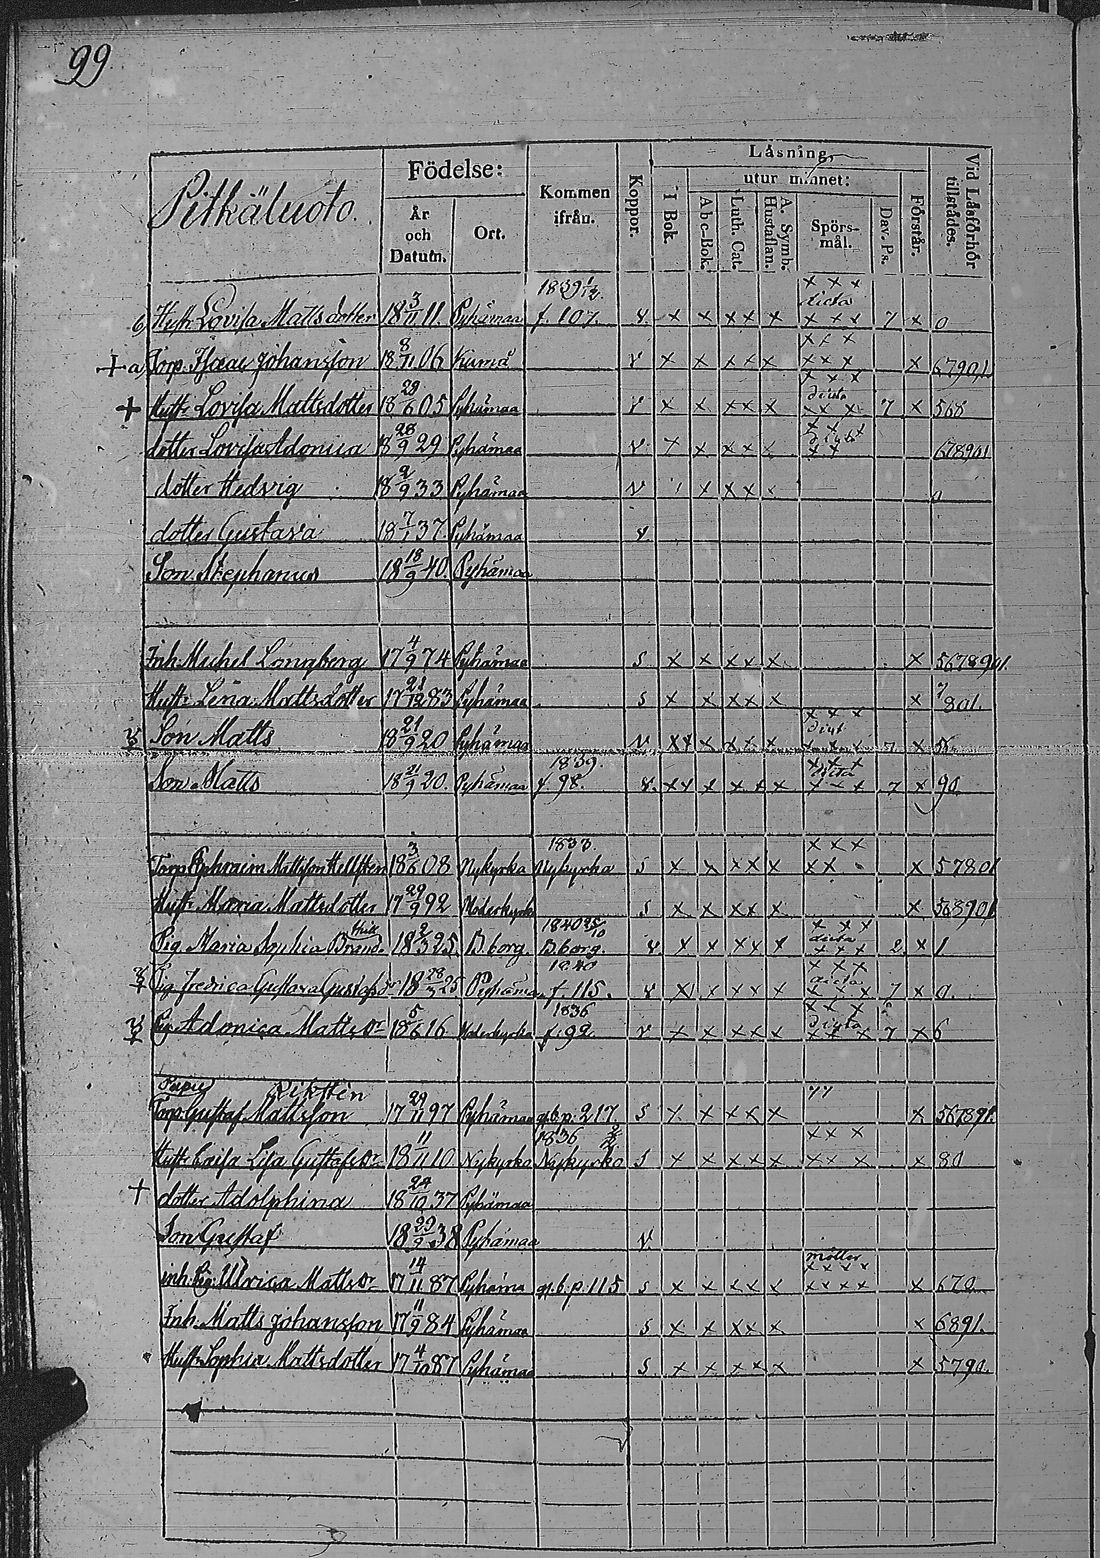 99
Pitkäluoto.
Födelse:
År och Datum.
Ort.
Kommen ifrån.
Koppor.
Läsning
I Bok.
utur minnet:
Abc-Bok.
Luth. Cat.
A. Symb. Hustaflan.
Spörs-mål.
Dav. Ps.
Förstår.
Vid Läsförhör tillstädes.
1839 1/12 x x x
6 Hustr Lovisa Mattsdotter 18 3/11 11. Pyhämaa f. 107. v. x x x x x dicta x x x 7 x 0
+ a Torp. Isaac Johansson 18 8/11 06 Kumå v x x x x x x x x x 67901
+ Hustr Lovisa Mattsdotter 18 29/6 05 Pyhämaa v x x x x x dicta x x x 7 x 568
dotter Lovisa Adonica 18 28/9 29 Pyhämaa v x x x x x x x 678901
dotter Hedvig 18 2/9 33 Pyhämaa v x x x x 0
dotter Gustava 18 7/1 37 Pyhämaa v
Son Stephanus 18 18/9 40. Pyhämaa
Inh. Michel Lönnberg 17 4/9 74 Pyhämaa s x x x x x x 5678901.
Hustr Lena Mattsdotter 17 21/12 83 Pyhämaa s x x x x x x 7801.
Son Matts 18 21/9 20 Pyhämaa v x x x x x x 7 x 56
1839.
Son Matts 18 21/9 20. Pyhämaa f. 98. v. x x x x x x x x x 7 x 90
1833. x x x
Torp Ephraim Mattsson Hellsten 18 3/6 08 Nykyrka Nykyrka s x x x x x x x x 57801
Hustr Maria Mattsdotter 17 29/9 92 Moderkyrk s x x x x x x 568901
1840 25/10 x x x
Pig. Maria Sophia Brand 18 2/3 25. B borg. B.borg. v. x x x x x dicta x x x 2. x 1
1840 x x x
Pig Fredrica Gustava Gustafsdr 18 28/5 25 Pyhäma f. 115. v x x x x x dicta 7 x 0.
1836 x x x
Pig Adonica Mattsdr 18 5/6 16 Moderkyrka f. 92. v x x x x x dicta x x x 7 x 6
Torp Gustaf Mattsson 17 29/11 97 Pyhämaa gl.b.p. 217 s x x x x x x 567891.
1836 x x x
Hustr Caisa Lisa Gustafsdr 18 11/11 10 Nykyrko Nykyrko s x x x x x x x x x 80
+ dotter Adolphina 18 24/10 37 Pyhämaa
Son Gustaf 18 29/9 38 Pyhämaa v.
inh. Pig. Ulrica Mattsdr 17 14/11 87 Pyhäma gl.b.p. 115 s x x x x x x x x x x 670
Inh. Matts Johansson 17 11/9 84 Pyhämaa s x x x x x x 6891.
Hustr Sophia Mattsdotter 17 4/10 87 Pyhämaa s. x x x x x x 5790.